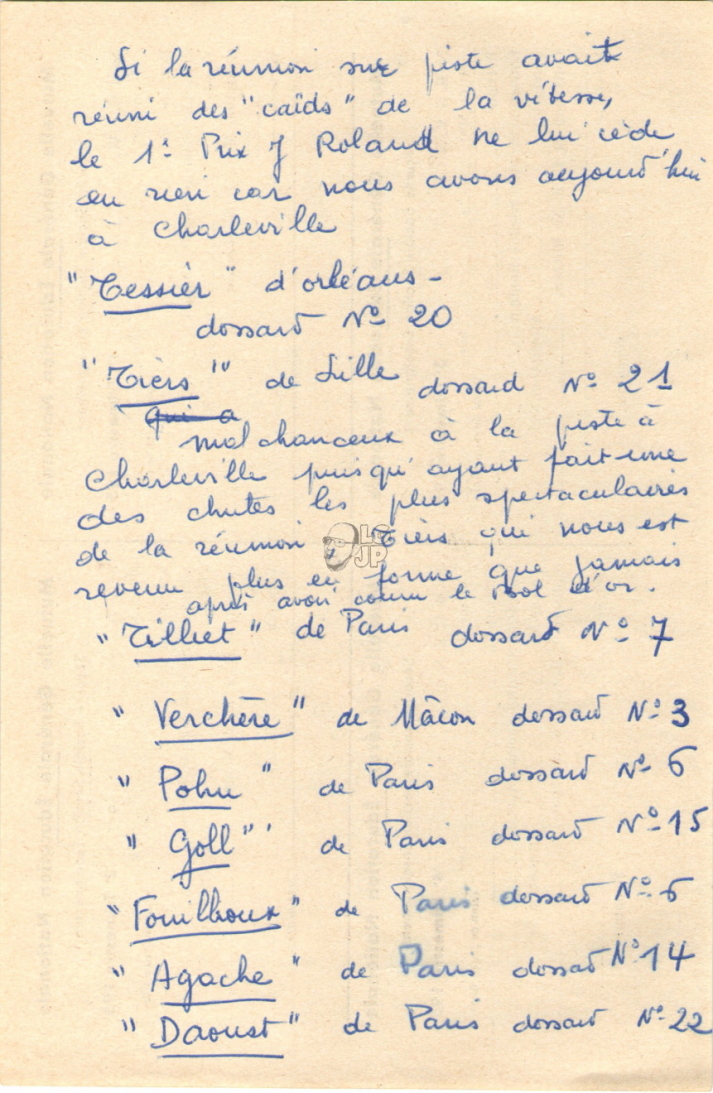 Si la réunion sur piste avait
réuni des "caïds" de la vitesse,
le 1er Prix J Roland ne lui cède
en rien car nous avons aujourd'hui
à Charleville
"Tessier" d'orléans -
dossard N° 20
"Tiers" de Lille dossard N° 21
qui a
malchanceux à la piste à
Charleville puisqu'ayant fait une
des chutes les plus spectaculaires
de la réunion, Tiers qui nous est
revenu plus en forme que jamais
après avoir couru le Bol d'or.
"Tilliet" de Paris dossard N° 7
"Verchère" de Mâcon dossard N° 3
"Pohu" de Paris dossard N° 6
"Goll" de Paris dossard N° 15
"Fouilhoux" de Paris dossard N° 6
"Agache" de Paris dossard N° 14
"Daoust" de Paris dossard N° 22
LG
JP